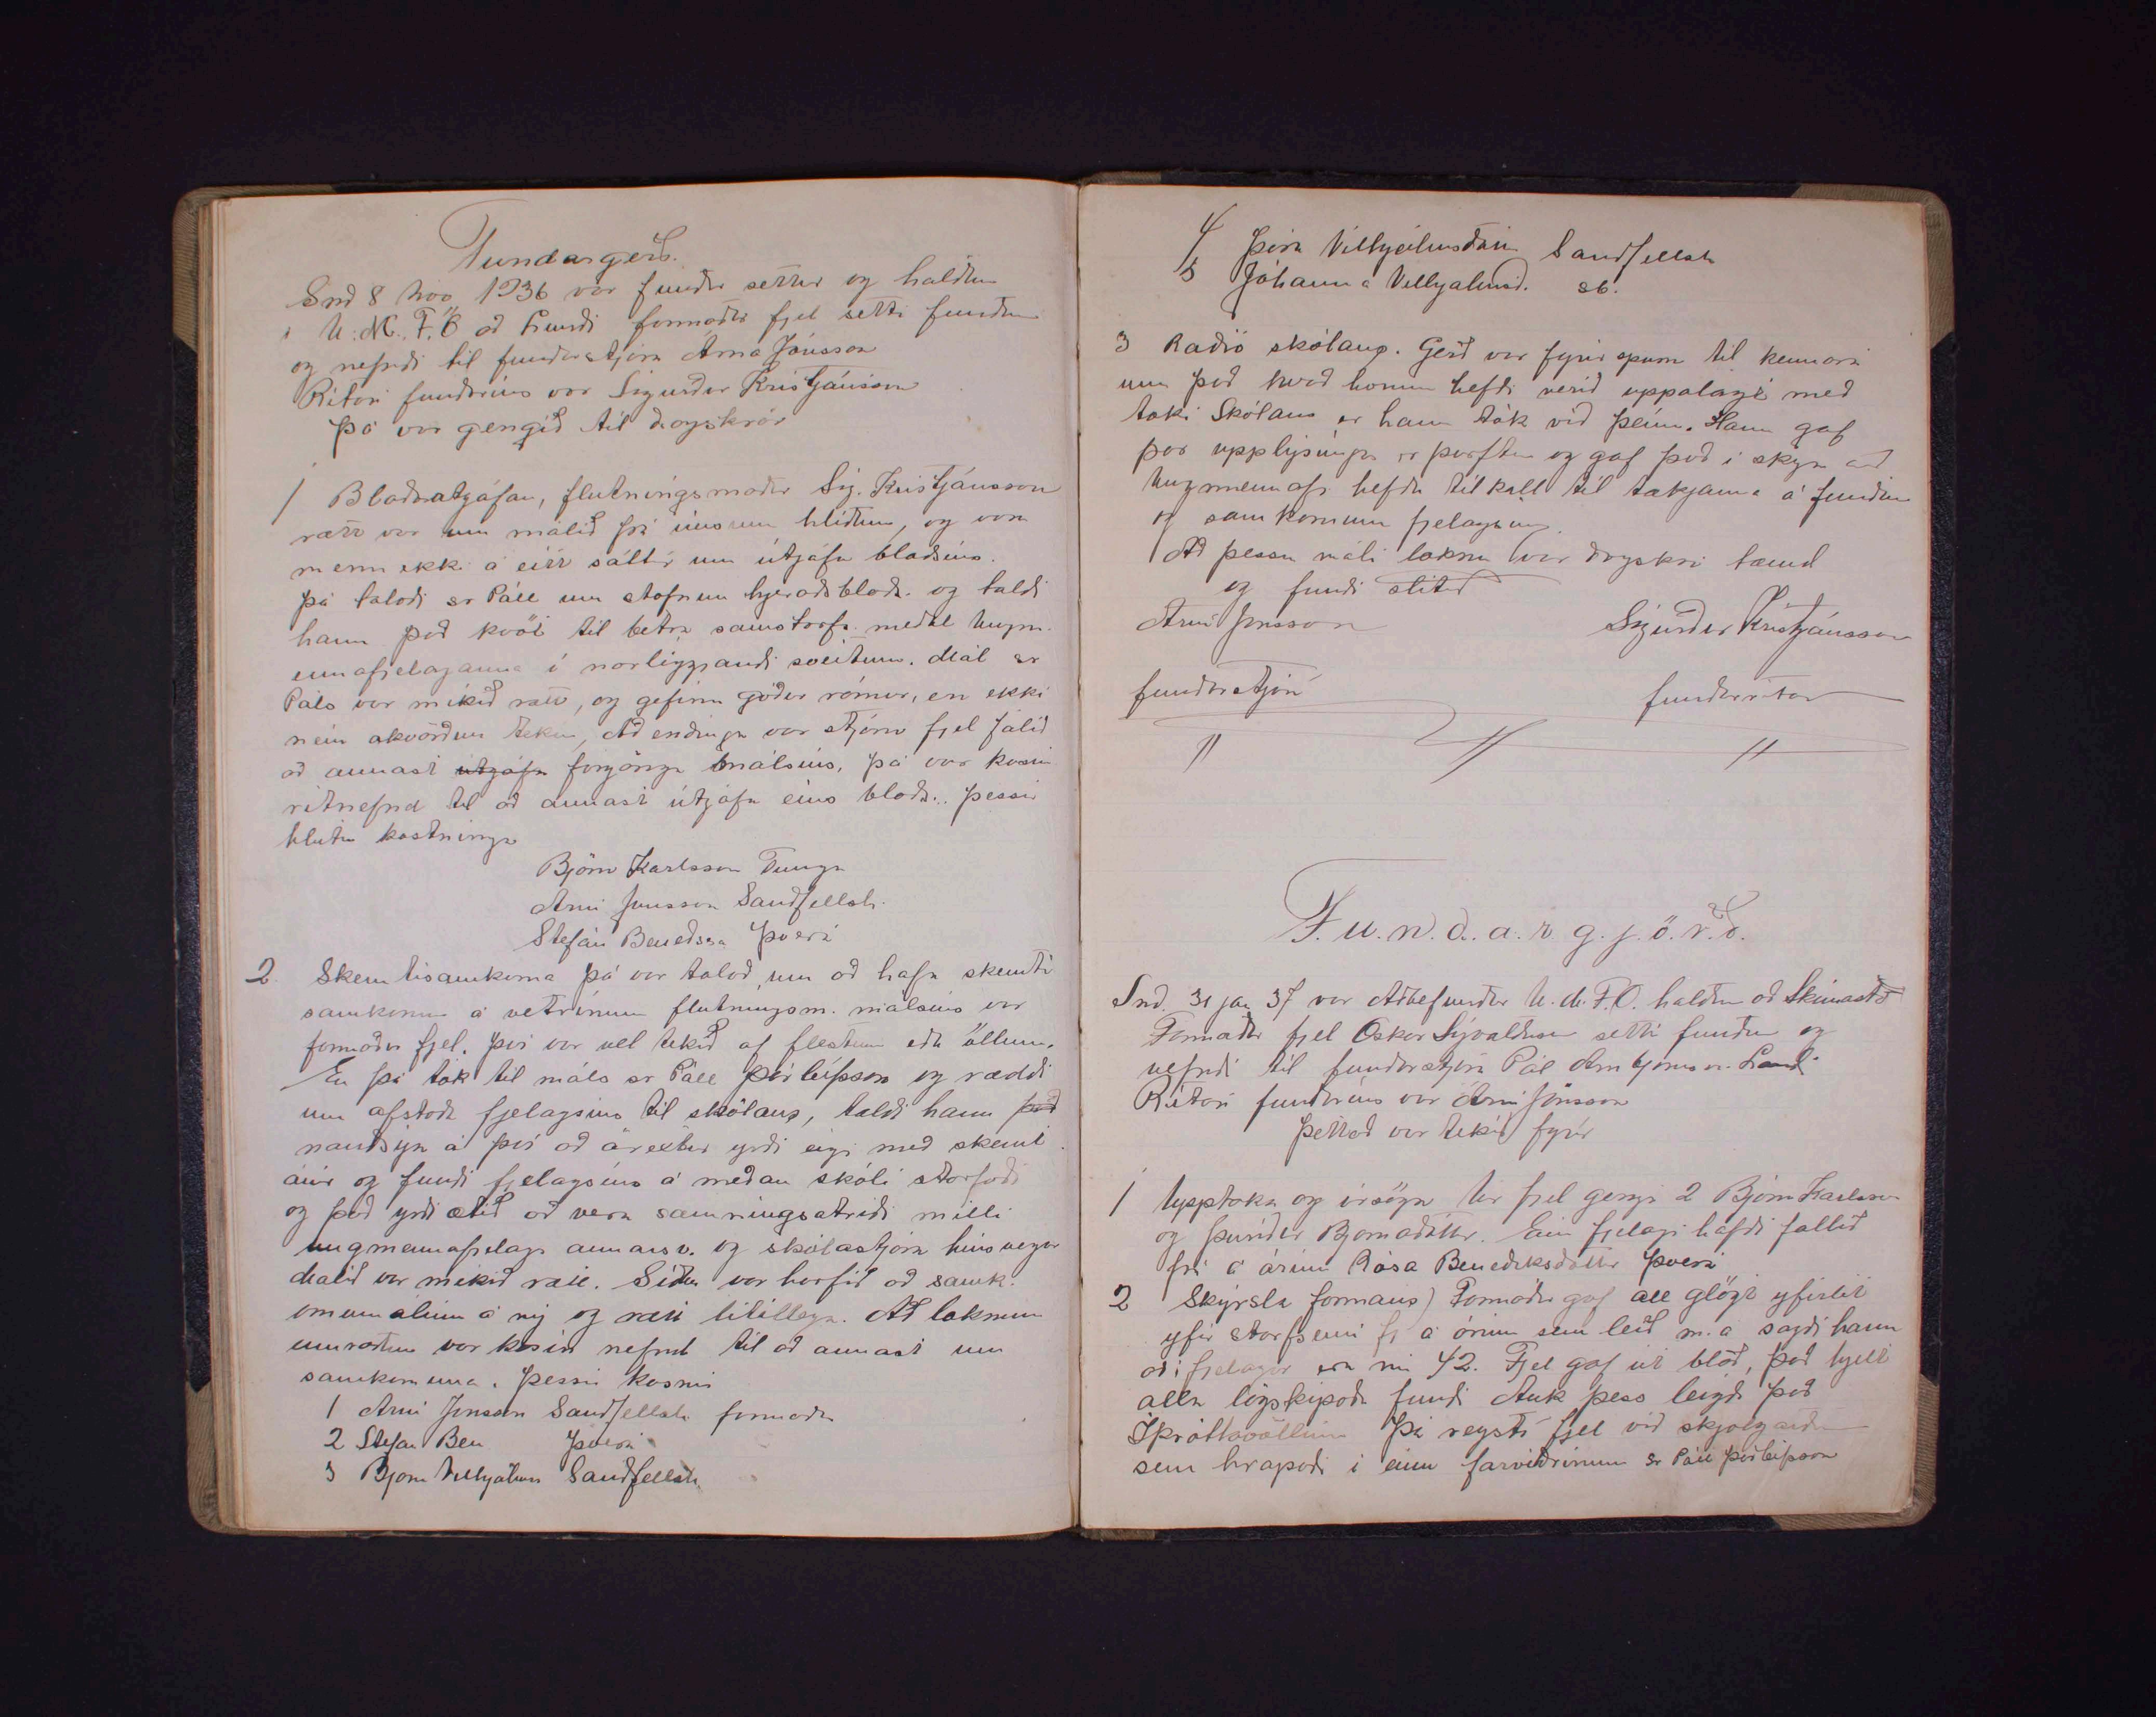 Fundargerð.
Snd 8 nóv 1936 var fundur settur og haldinn
í U.M.F.Ö að Lundi formaður fjel setti fundin
og nefndi til fundarstjóra Árna Jónsson
Ritari fundarins var Sigurður Kristjánsson
þá var gengið til dagskrár
1 Blaðaútgáfan, flutningsmaður Sig. Kristjánsson
rætt var um málið frá ímsum hliðum, og voru
menn ekki á eitt sáttir um útgáfu blaðsins.
þá talaði sr Páll um stofnun hjeraðsblaðs og taldi
hann það kvöt til betra samstarfs meðal Ungm.
ennafjelaganna í nærliggjandi sveitum. Mál sr
Páls var mikið rætt, og gefinn góður rómur, en ekki
nein akvörðun tekin, Að endingu var stjórn fjel falið
að annast útgáfu forgöngu málsins, þá var kosin
ritnefnd til að annast útgáfu eins blaðs. þessir
hlutu kostningu
Björn Karlsson Tunga
Arni Jónsson Sandfellsh.
Stefán Benedss. Þverá
2. Skemtisamkoma þá var talað um að hafa skemti
samkomu á vetrinum flutningsm. málsins var
formaður fjel. því var vel tekið af flestum eða öllum.
En þá tók til máls sr Páll Þorleifsson og ræddi
um afstöðu fjelagsins til skólans, taldi hann það
nauðsyn á því að árextur yrði eigi með skemt
anir og fundi fjelagsins á meðan skóli starfaði
og það yrði ætið að vera samningsatriði milli
ungmennafjelags annars v. og skólastjóra hins vegar
Malið var mikið rætt. Síðan var horfið að samk.
omumálinu á ný og rætt lítillega. Að loknum
umræðum var kosin nefnd til að annast um
samkomuna. Þessir kosnir
1 Arni Jónsson Sandfellsh formaður
2 Stefan Ben Þverá
3 Bjorn Vilhjálms Sandfellsh.
4 Þóra Vilhjálmsdóttir Sandfellsh
5 Jóhanna Vilhjalmsd. sb.
3 Radíó skólans. Gerð var fyrir spurn til kennara
um það hvað honum hefði verið uppálagt með
tæki Skólans er hann tók við þeim. Hann gaf
þær upplýsingar er þurftu og gaf það í skyn að
Ungmennafj hefði tilkall til tækjanna á fundum
og samkomum fjelagsins
Að þessu máli loknu var dagskrá tæmd
og fundi slitið
Arni Jónsson Sigurður Kristjánsson
fundarstjóri fundarritari
F.u.n.d.a.r g.j.ö.r.ð.
Snd. 31 jan 37 var Aðalfundur U.M.F.Ö. haldin að Skinnastað
Formaður fjel Óskar Sigvaldason setti fundin og
nefndi til fundarstjóra Pál Arnbjörnss. Lundi
Ritari fundarins var Árni Jónsson
Þettað var tekið fyrir
1 Upptaka og úrsögn Úr fjel gengu 2 Björn Karlsson
og Þuríður Bjornadóttir. Einn fjelagi hafði fallið
frá á árinu Rósa Benediksdóttir Þverá
2 Skýrsla formans) Formaður gaf all glögt yfirlit
yfir starfsemi fj á árinu sem leið m.a sagði hann
að fjelagar eru nú 42. Fjel gaf út blað, það hjelt
alla lögskipaða fundi Auk þess leigði það
Íþróttavöllinn Þá reysti fjel við skjolgarðin
sem hrapaði í einu farviðrinum sr Páll Þorleifsson